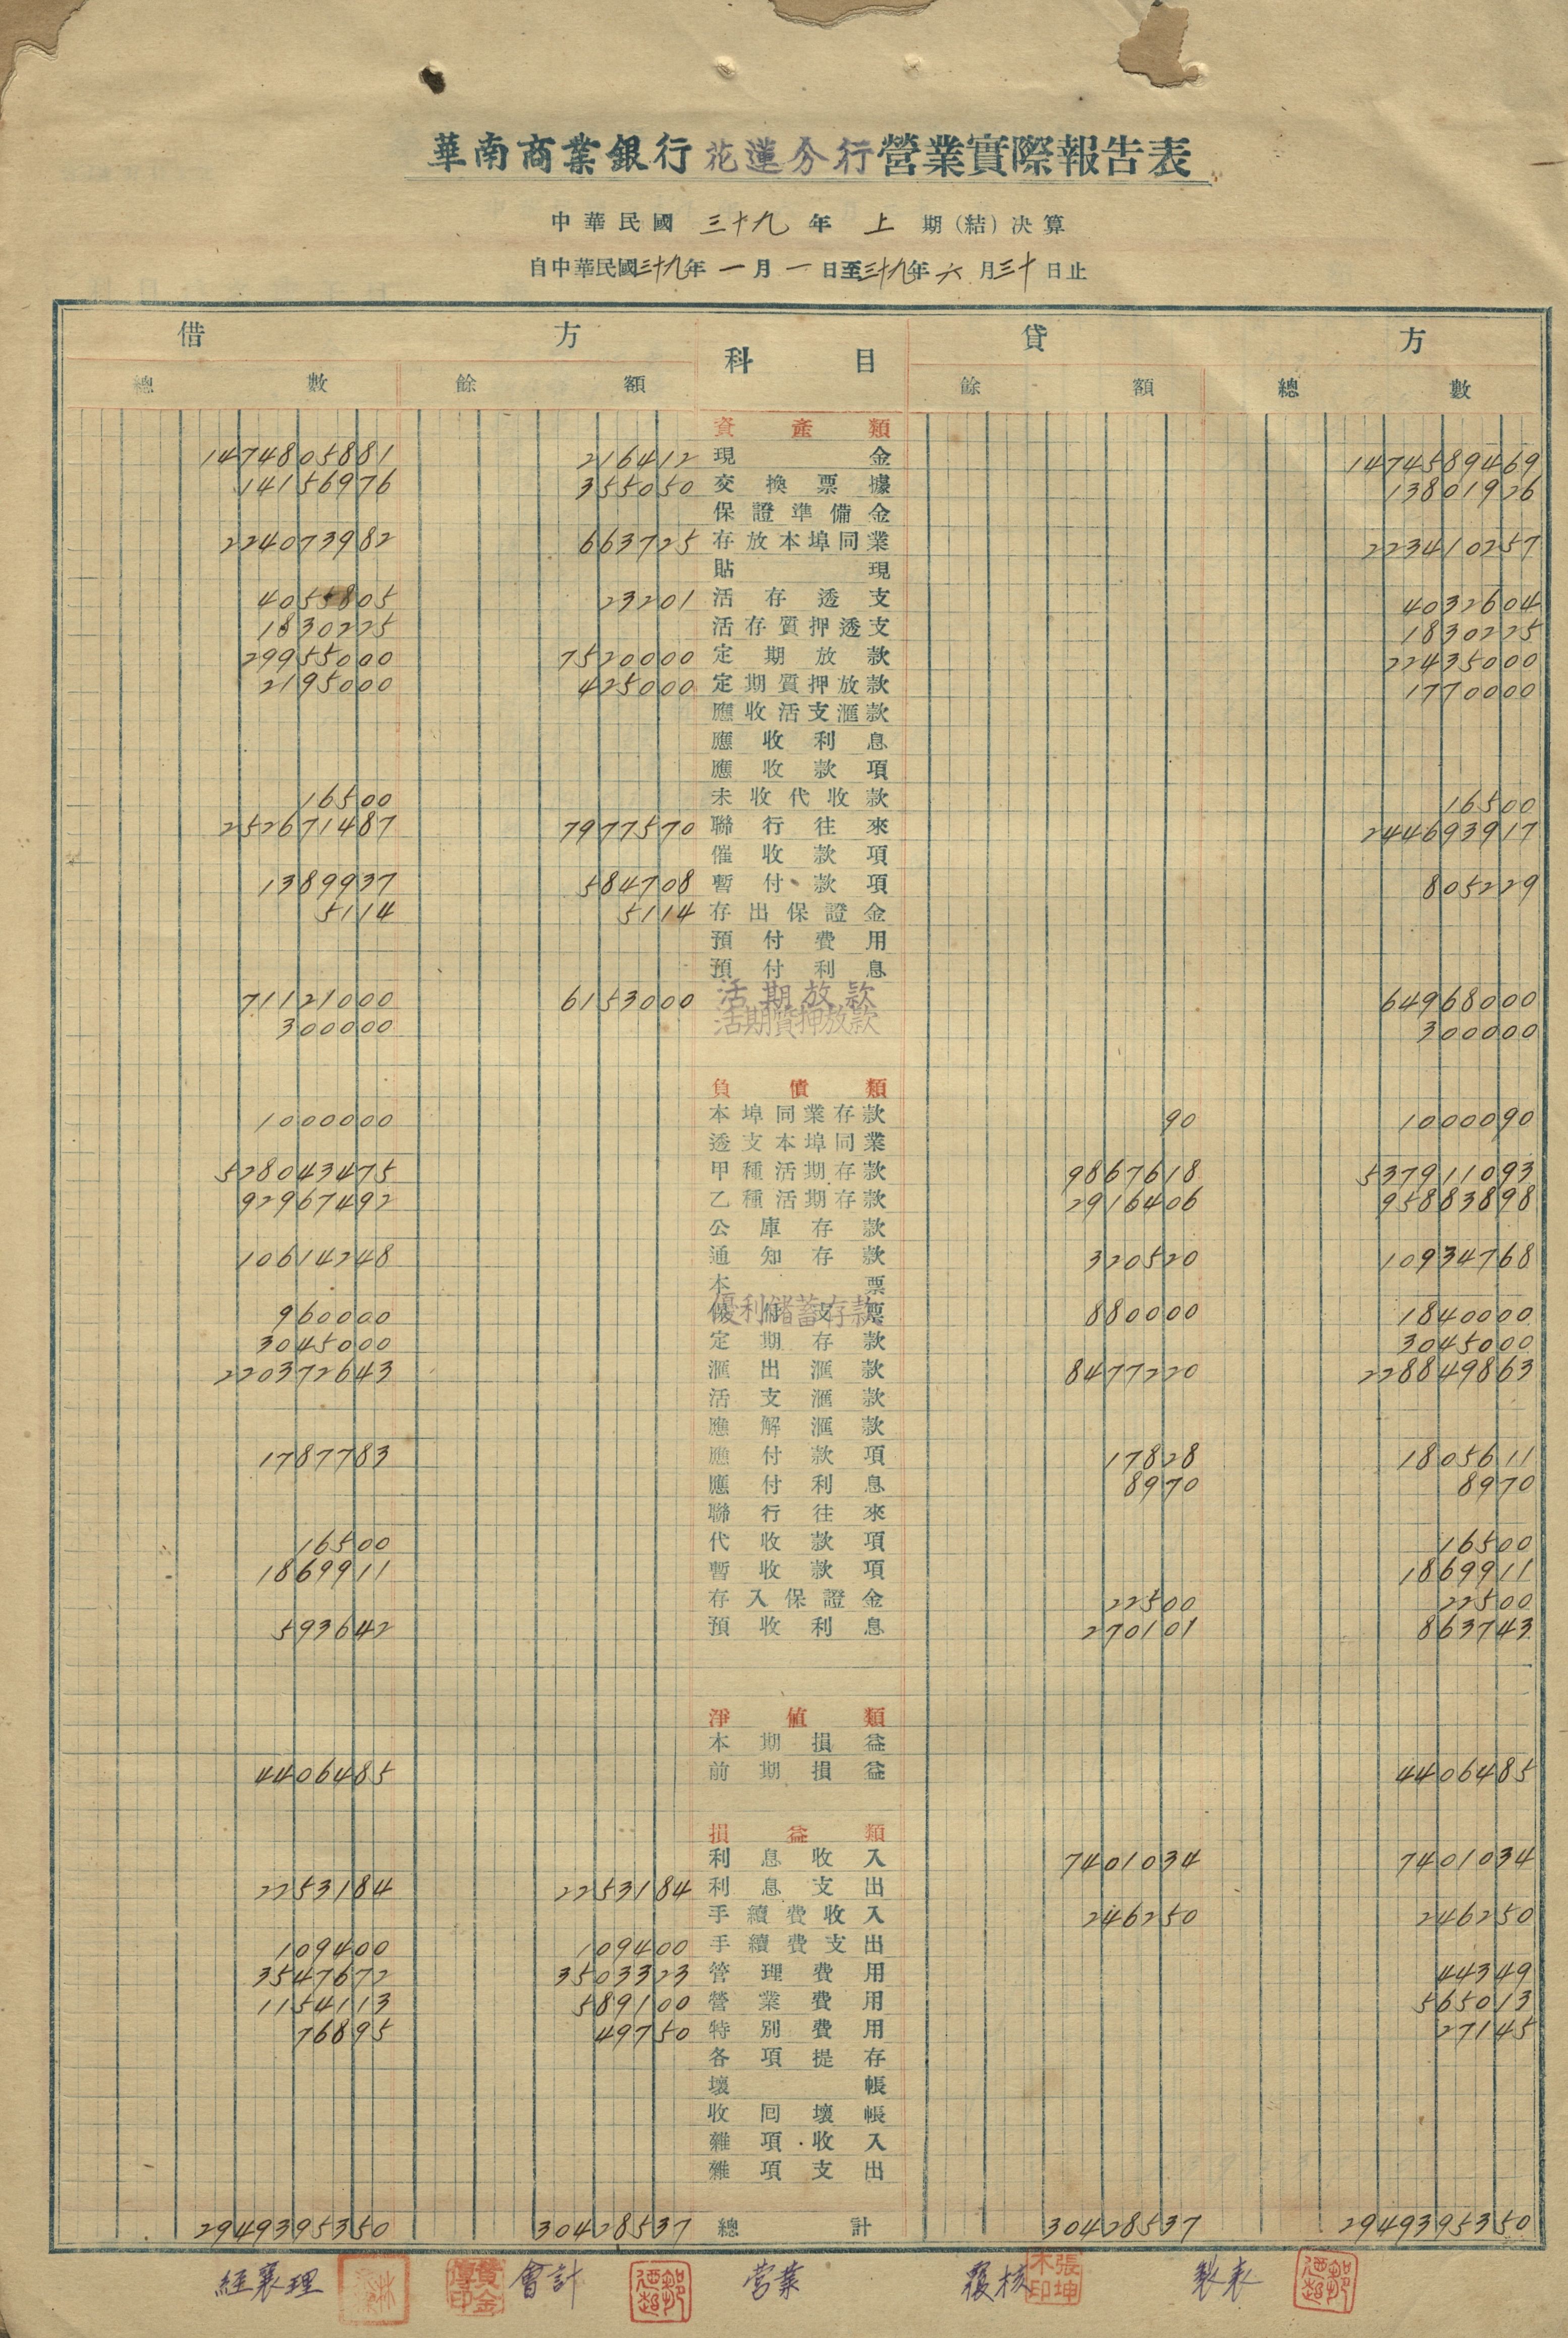 華南商業銀行花蓮分行營業實際報告表
中華民國 三十九 年 上 期(結)決算
自中華民國三十九年 一 月 一 日至三十九年 六 月三十日止
借 方 科 目 貸 方
總 數 餘 額 餘 額 總 數
資產類
1474805881 216412 現金 1474589469
14156976 355050 交換票據 13801926
保證準備金
224073982 663725 存放本埠同業 223410257
貼現
4055805 23201 活存透支 4032604
1830225 活存質押透支 1830225
29955000 7520000 定期放款 22435000
2195000 425000 定期質押放款 1770000
應收活支滙款
應收利息
應收款項
16500 未收代收款 16500
252671487 7977570 聯行往來 244693917
催收款項
1389937 584708 暫付款項 805229
5114 5114 存出保證金
預付費用
預付利息
71121000 6153000 活期放款 64968000
300000 活期質押放款 300000
負債類
1000000 本埠同業存款 90 1000090
透支本埠同業
528043475 甲種活期存款 9867618 537911093
92967492 乙種活期存款 2916406 95883898
公庫存款
10614248 通知存款 320520 10934768
本票
960000 優利儲蓄存款 880000 1840000
3045000 定期存款 3045000
220372643 滙出滙款 8477220 228849863
活支滙款
應解滙款
1787783 應付款項 17828 1805611
應付利息 8970 8970
聯行往來
16500 代收款項 16500
1869911 暫收款項 1869911
存入保證金 22500 22500
593642 預收利息 270101 863743
淨值類
本期損益
4406485 前期損益 4406485
損益類
利息收入 7401034 7401034
2253184 2253184 利息支出
手續費收入 246250 246250
109400 109400 手續費支出
3547672 3503323 管理費用 44349
1154113 589100 營業費用 565013
76895 49750 特別費用 27145
各項提存
壞帳
收回壞帳
雜項收入
雜項支出
2949395350 30428537 總計 30428537 2949395350
經襄理 會計 営業 覆核 張坤木印 製表